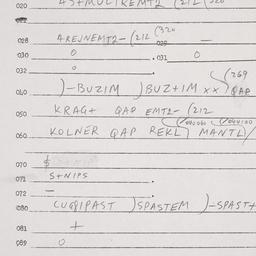 020 AS+MULIREMT2 (212 (320
028 AREJNEMT2-(212 (320
029 —
030 0 031 0
032 0
(269
040 )-BUZIM )BUZ+IM XX QAP
050 KRAG+ QAP EMT2- (212
060 KOLNER QAP REKL MANTL/
070 $
071 S+NIPS
072 —
080 CUQIPAST )SPASTEM )-SPAST+
081 +
089 0